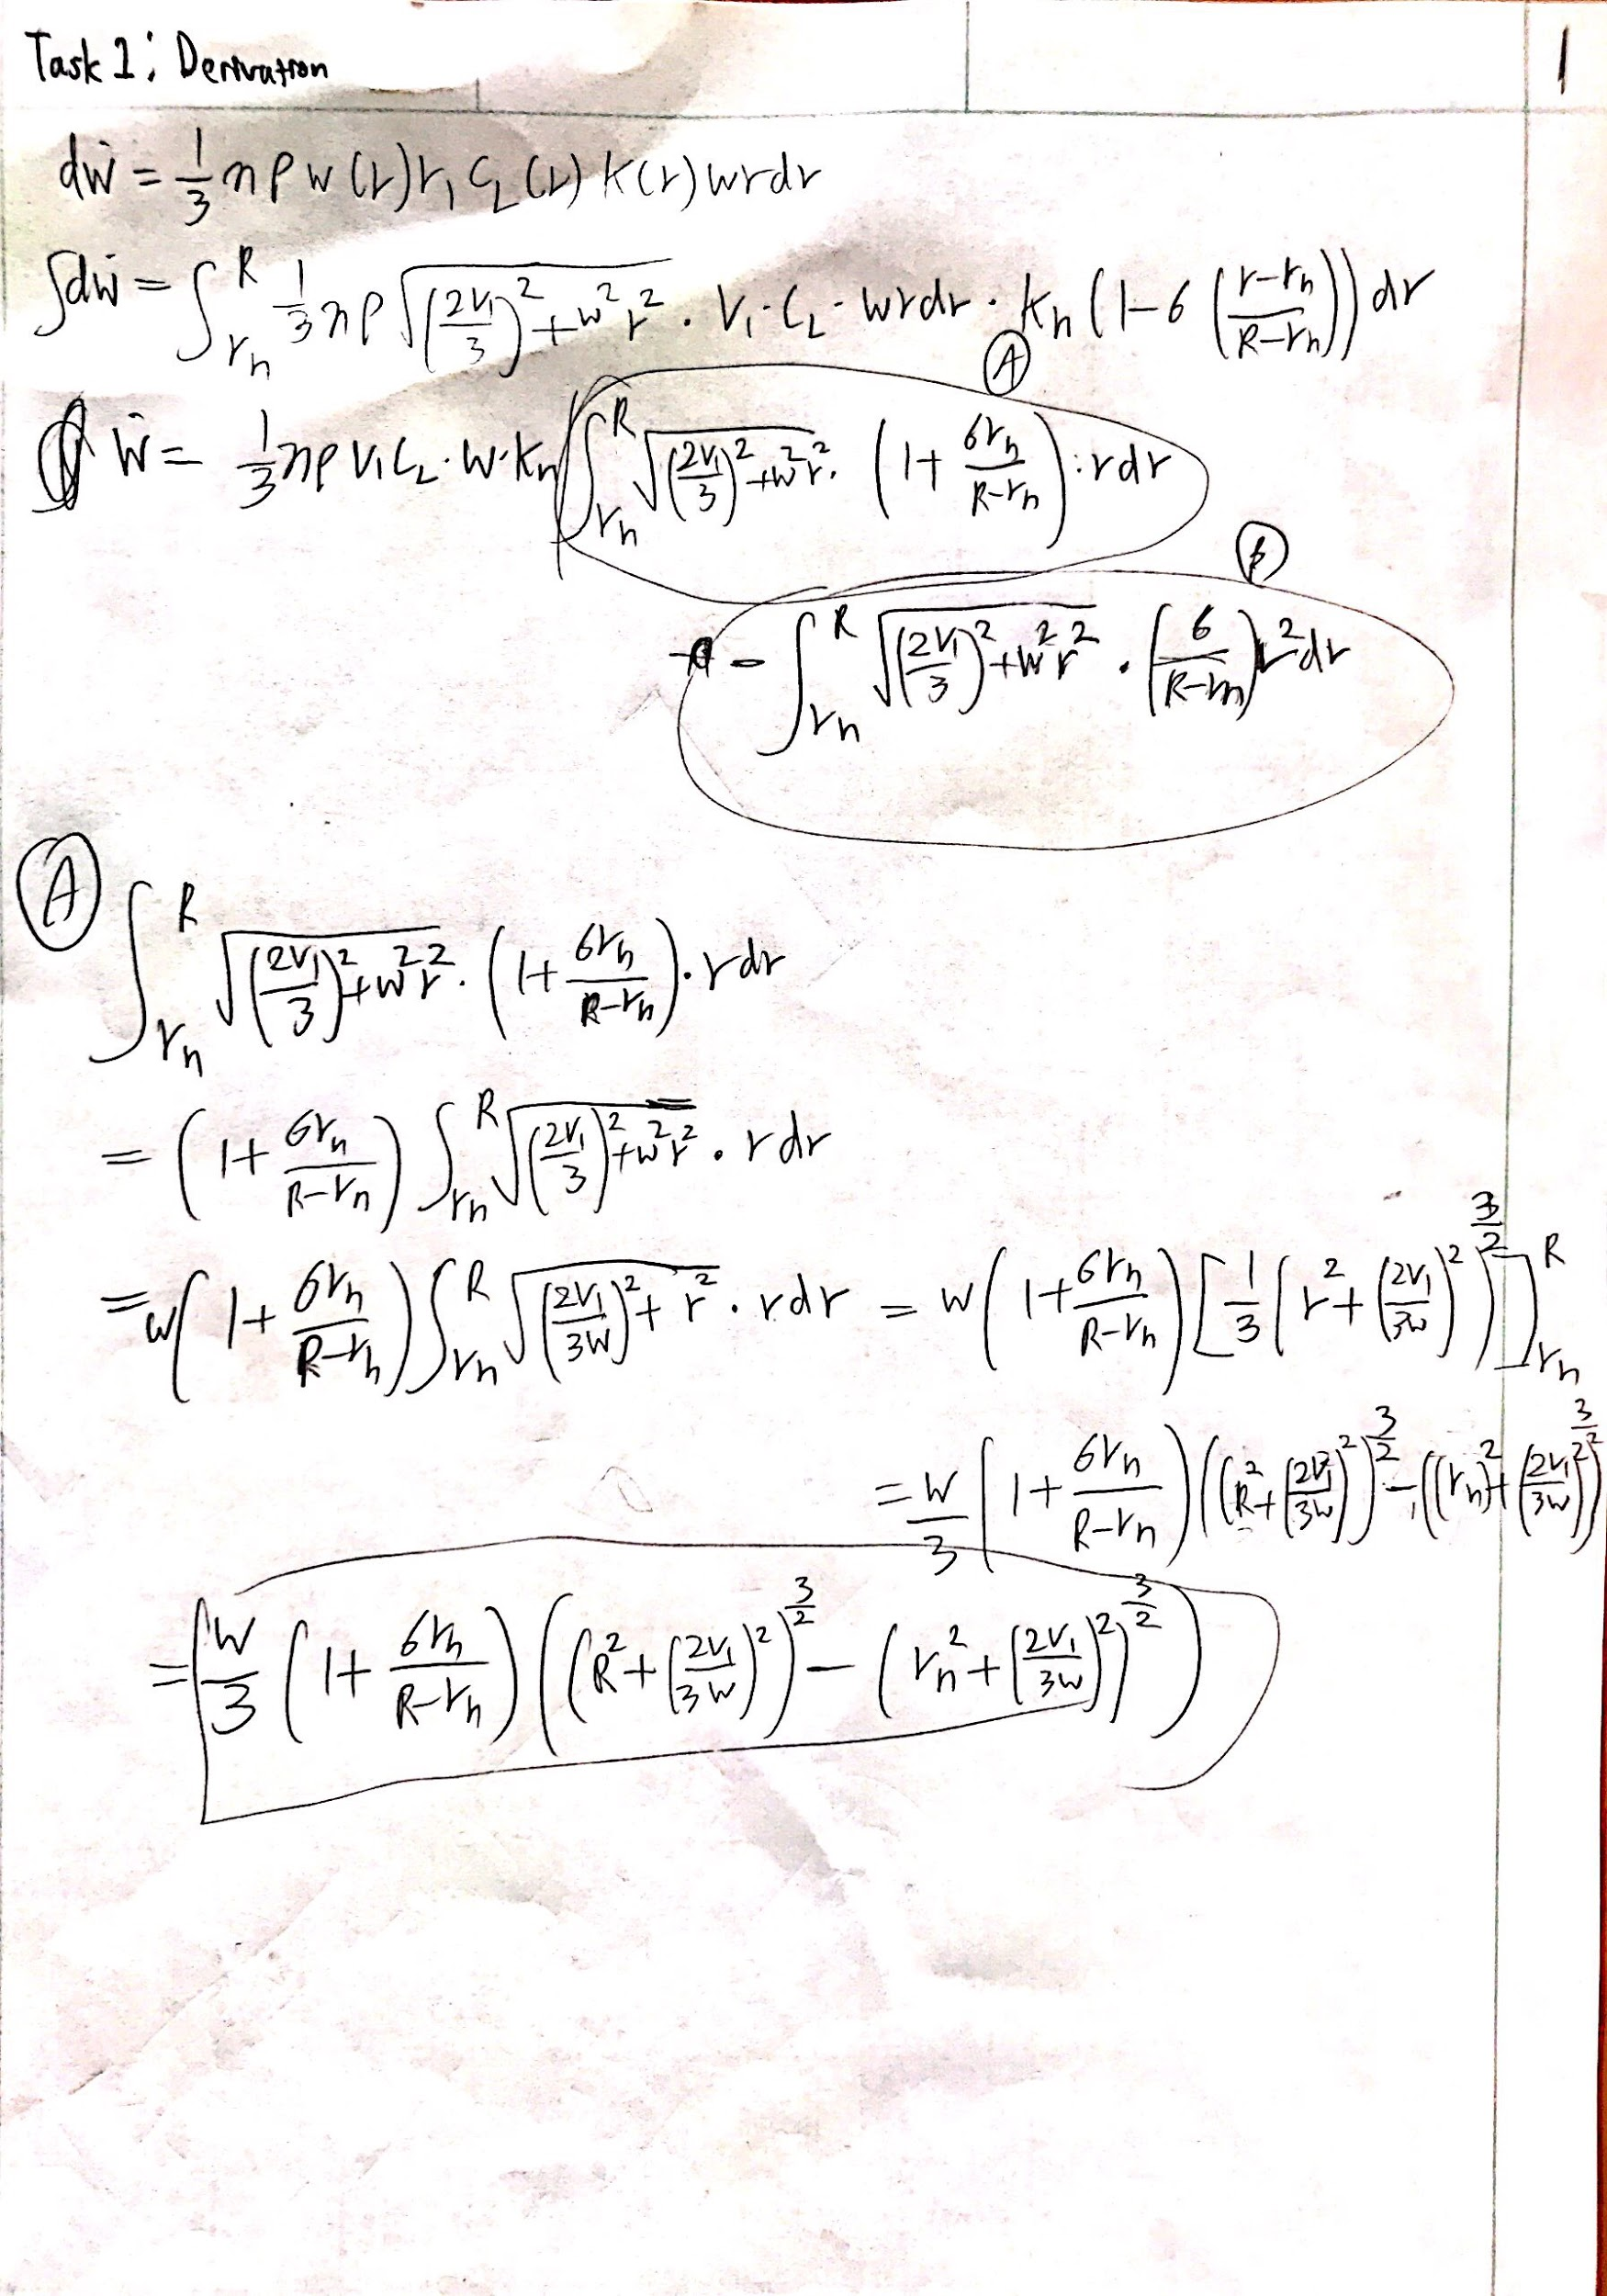 Task 1: Derivation
1
dẇ = 1/3 n ρ w(r) r₁ C_L(r) K(r) w r dr
∫dẇ = ∫_{r_h}^{R} 1/3 n ρ √((2V₁/3)² + w²r²) · V₁ · C_L · w r dr · K_h (1 - 6 ((r - r_h)/(R - r_h))) dr
Ẇ = 1/3 n ρ V₁ C_L · w · K_h ∫_{r_h}^{R} √((2V₁/3)² + w²r²) · (1 + 6r_h/(R - r_h)) · r dr
Ⓐ
Ⓑ
- ∫_{r_h}^{R} √((2V₁/3)² + w²r²) · (6/(R - r_h)) r² dr
Ⓐ ∫_{r_h}^{R} √((2V₁/3)² + w²r²) · (1 + 6r_h/(R - r_h)) · r dr
= (1 + 6r_h/(R - r_h)) ∫_{r_h}^{R} √((2V₁/3)² + w²r²) · r dr
= w(1 + 6r_h/(R - r_h)) ∫_{r_h}^{R} √((2V₁/3w)² + r²) · r dr = w(1 + 6r_h/(R - r_h)) [1/3 (r² + (2V₁/3w)²)^{3/2}]_{r_h}^{R}
= w/3 (1 + 6r_h/(R - r_h)) ((R² + (2V₁/3w)²)^{3/2} - ((r_h)² + (2V₁/3w)²)^{3/2})
= w/3 (1 + 6r_h/(R - r_h)) ((R² + (2V₁/3w)²)^{3/2} - (r_h² + (2V₁/3w)²)^{3/2})